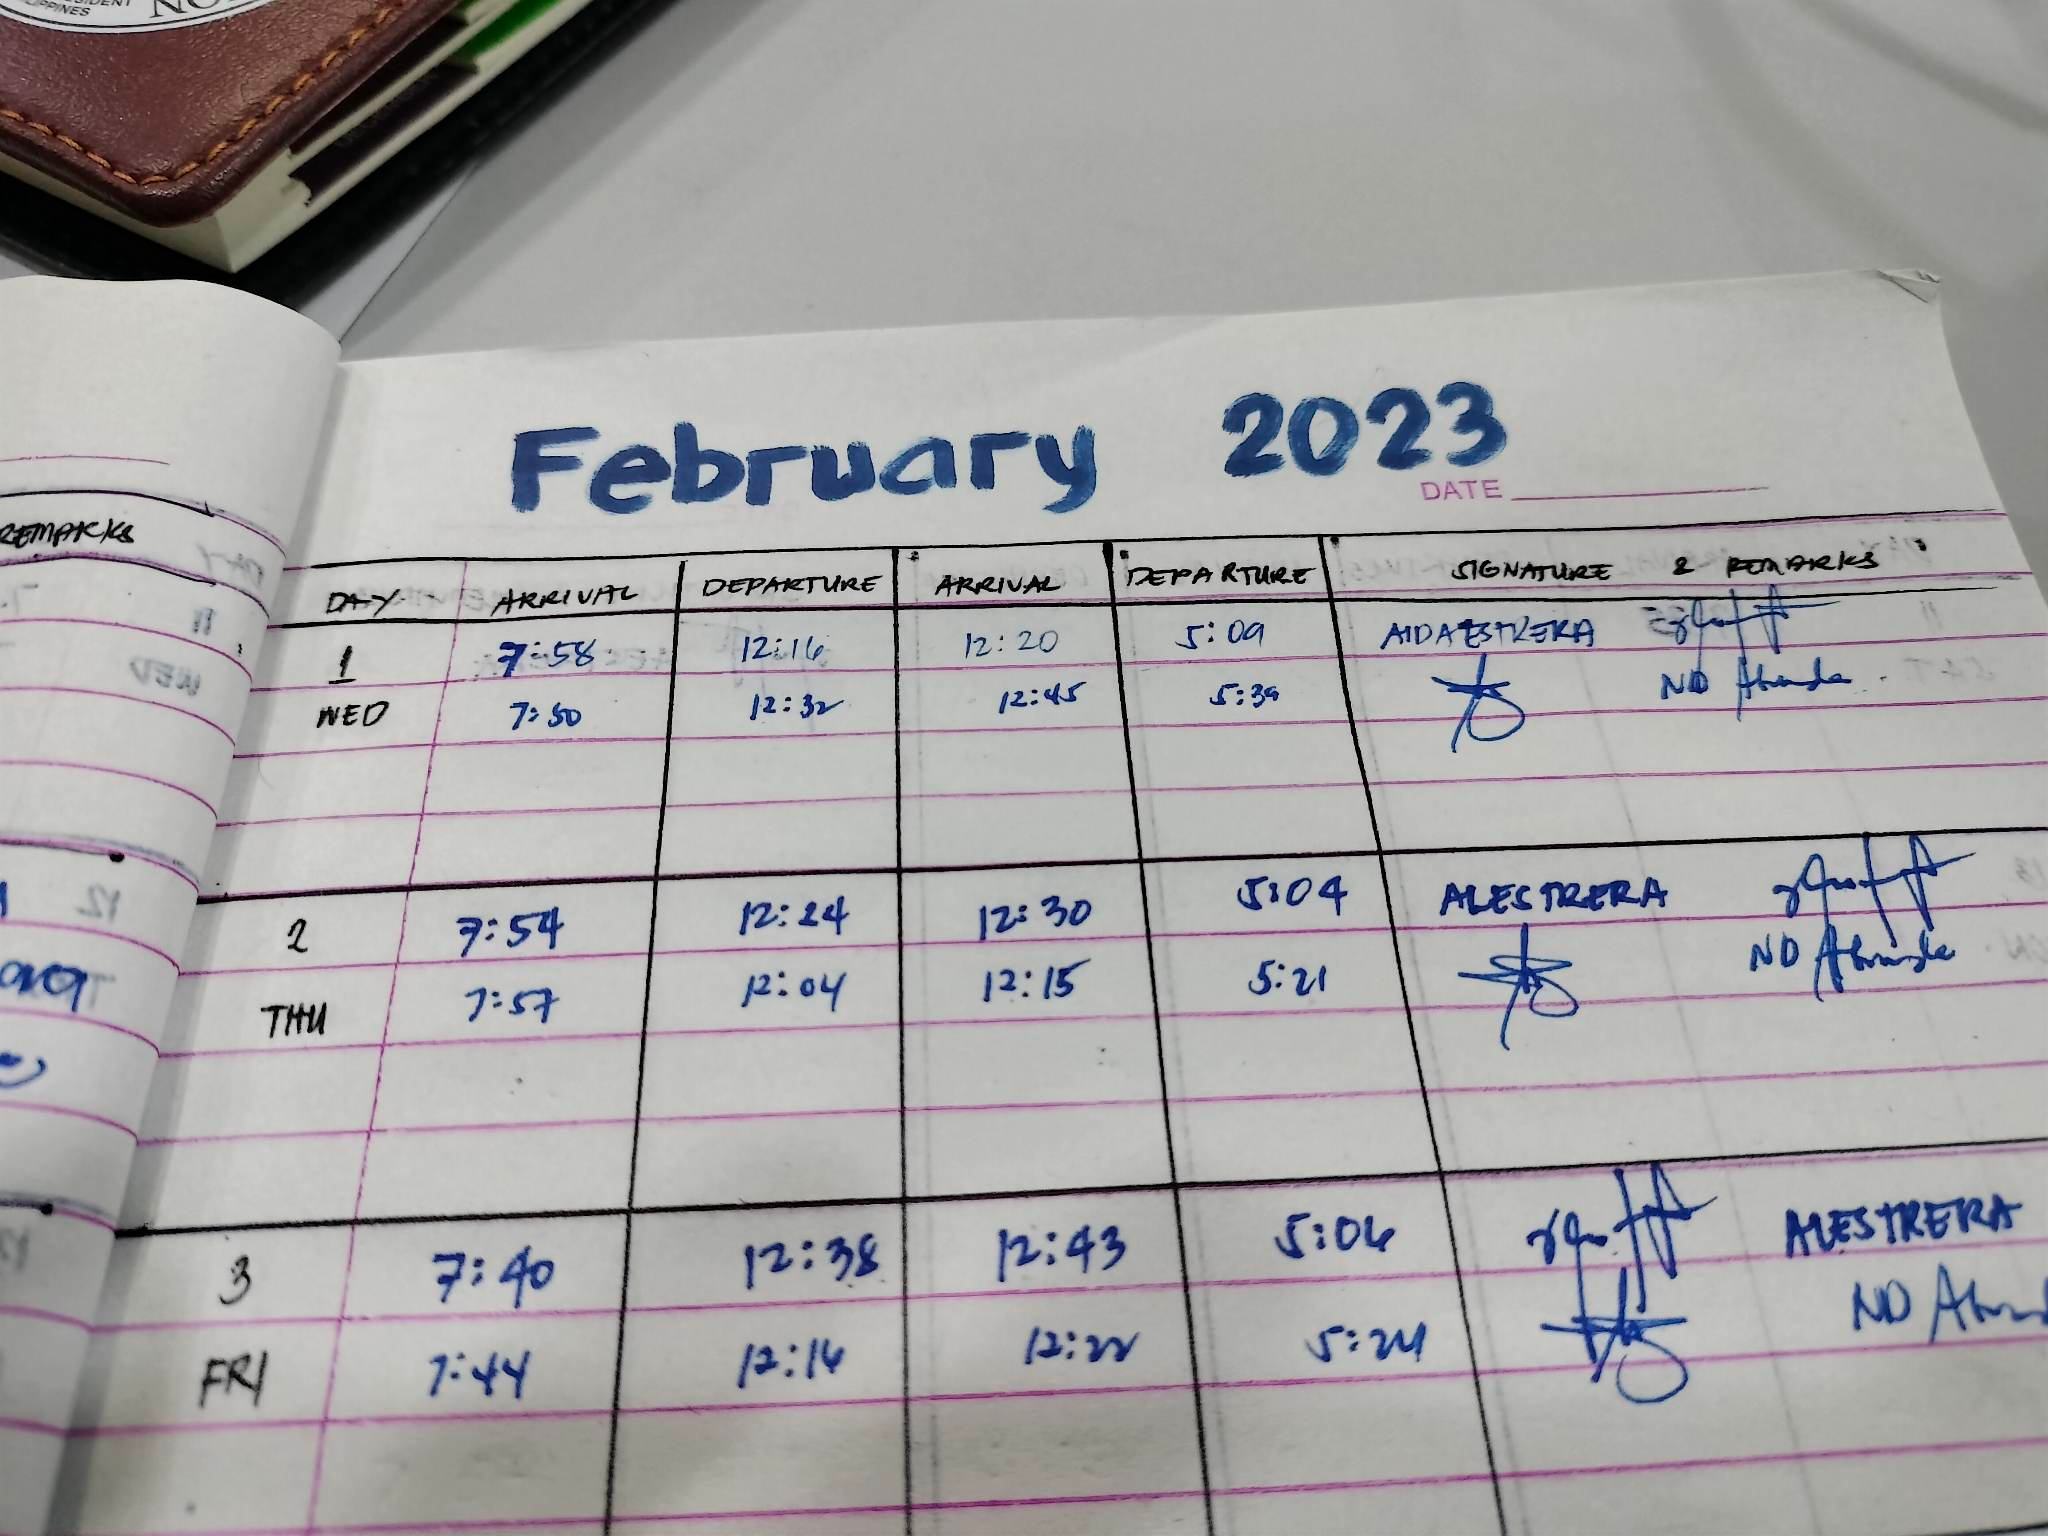 PRESIDENT
PHILIPPINES
REMARKS
February 2023
DATE
DAY ARRIVAL DEPARTURE ARRIVAL DEPARTURE SIGNATURE & REMARKS
1 7:58 12:16 12:20 5:09 AIDAESTRERA
WED 7:50 12:32 12:45 5:39 ND
2 7:54 12:24 12:30 5:04 ALESTRERA
THU 7:57 12:04 12:15 5:21 ND
3 7:40 12:38 12:43 5:06 ALESTRERA
FRI 7:44 12:16 12:22 5:24 ND